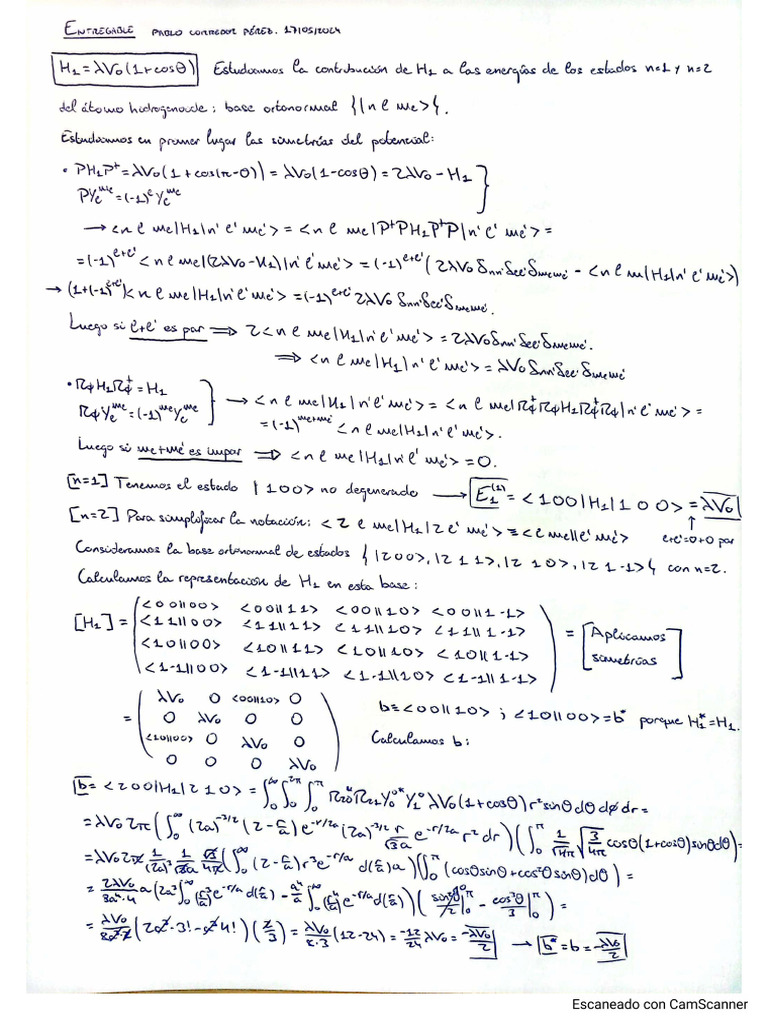 ENTREGABLE PABLO CORREDOR PÉREZ. 17/05/2024
H₁=λV₀(1+cosθ) Estudiamos la contribución de H₁ a las energías de los estados n=1 y n=2
del átomo hidrogenoide: base ortonormal {|n l me>}.
Estudiamos en primer lugar las simetrías del potencial:
• PH₁P⁺=λV₀(1+cos(π-θ))=λV₀(1-cosθ)=2λV₀-H₁
PYₑᵐᵉ=(-1)ᵉYₑᵐᵉ
→<n l me|H₁|n' l' me'>=<n l me|P⁺PH₁P⁺P|n' l' me'>=
=(-1)^(l+l')<n l me|(2λV₀-H₁)|n' l' me'>=(-1)^(l+l')(2λV₀ δnn' δll' δmeme' - <n l m|H₁|n' l' me'>)
→(1+(-1)^(l+l'))<n l me|H₁|n' l' me'>=(-1)^(l+l') 2λV₀ δnn' δll' δmeme'.
Luego si l+l' es par ⟹ 2<n l me|H₁|n' l' me'>=2λV₀ δnn' δll' δmeme'.
⟹ <n l me|H₁|n' l' me'>=λV₀ δnn' δll' δmeme'
• RϕH₁Rϕ⁺=H₁
RϕYₑᵐᵉ=(-1)ᵐᵉYₑᵐᵉ → <n l me|H₁|n' l' me'>=<n l me|Rϕ⁺RϕH₁Rϕ⁺Rϕ|n' l' me'>=
=(-1)^(me+me')<n l me|H₁|n' l' me'>.
Luego si me+me' es impar ⟹ <n l me|H₁|n' l' me'>=0.
[n=1] Tenemos el estado |100> no degenerado → E₁⁽¹⁾=<100|H₁|100>=λV₀
↑
l+l'=0+0 par
[n=2] Para simplificar la notación: <2 l me|H₁|2 l' me'>≡<l me||l' me'>
Consideramos la base ortonormal de estados {|200>,|211>,|210>,|21-1>} con n=2.
Calculamos la representación de H₁ en esta base:
<00||00> <00||11> <00||10> <00||1-1>
[H₁]= <11||00> <11||11> <11||10> <11||1-1> = [Aplicamos
<10||00> <10||11> <10||10> <10||1-1> simetrías]
<1-1||00> <1-1||11> <1-1||10> <1-1||1-1>
λV₀ 0 <00||10> 0
= 0 λV₀ 0 0 b≡<00||10>; <10||00>=b* porque H₁*=H₁.
<10||00> 0 λV₀ 0 Calculamos b:
0 0 0 λV₀
b=<200|H₁|210>=∫₀^∞∫₀^2π∫₀^π R₂₀*R₂₁Y₀⁰*Y₁⁰ λV₀(1+cosθ)r²sinθdθdϕdr=
=λV₀2π(∫₀^∞ (2a)^(-3/2) (2-r/a)e^(-r/2a)(2a)^(-3/2) r/(√3a) e^(-r/2a) r²dr)(∫₀^π 1/√4π √(3/4π) cosθ(1+cosθ)sinθdθ)=
=λV₀2π 1/(2a)³ 1/(√3a) √3/4π (∫₀^∞ (2-r/a)r³e^(-r/a) d(r/a)a)(∫₀^π (cosθsinθ+cos²θsinθ)dθ)=
=2λV₀/(8a⁴·4) a(2a³∫₀^∞ (r/a)³e^(-r/a)d(r/a)-a⁴/a∫₀^∞ (r/a)⁴e^(-r/a)d(r/a))(sin²θ/2|₀^π - cos³θ/3|₀^π)=
=λV₀/(8a³·2)(2a³·3!-a³4!)(2/3)=λV₀/(8·3)(12-24)=-12/24 λV₀=-λV₀/2 → b*=b=-λV₀/2
Escaneado con CamScanner